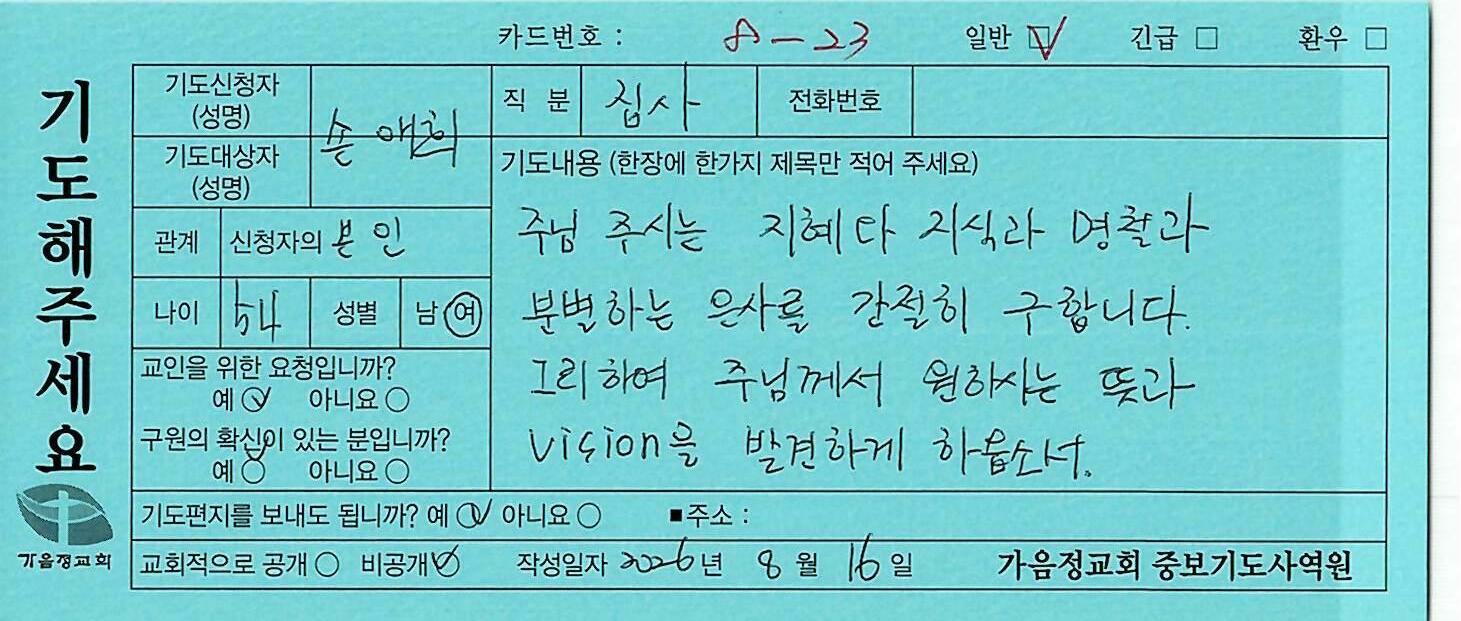 카드번호 : A-23 일반 ☑ 긴급 □ 환우 □
기도해주세요
가음정교회
기도신청자 (성명) 손애희
직 분 집사 전화번호
기도대상자 (성명)
관계 신청자의 본인
나이 54 성별 남 여
교인을 위한 요청입니까?
예 ○ 아니요 ○
구원의 확신이 있는 분입니까?
예 ○ 아니요 ○
기도내용 (한장에 한가지 제목만 적어 주세요)
주님 주시는 지혜와 지식과 명철과
분별하는 은사를 간절히 구합니다.
그리하여 주님께서 원하시는 뜻과
vision을 발견하게 하옵소서.
기도편지를 보내도 됩니까? 예 ○ 아니요 ○ ■주소 :
교회적으로 공개 ○ 비공개 ○ 작성일자 2026년 8월 16일 가음정교회 중보기도사역원